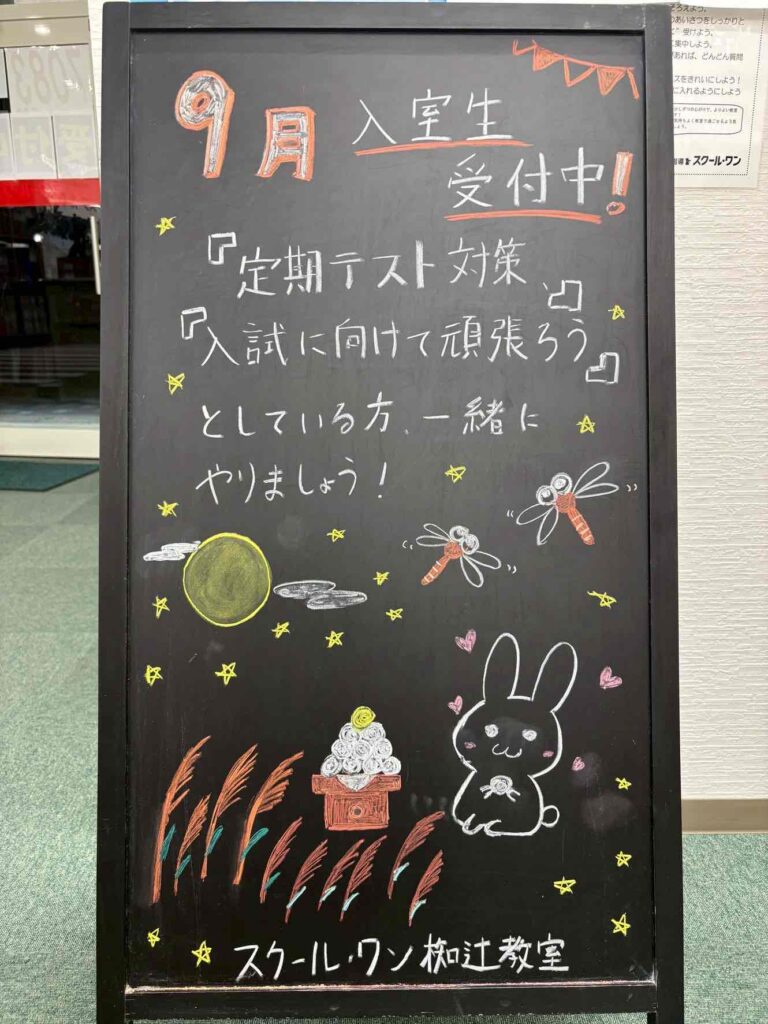 9月 入室生
受付中!
『定期テスト対策』
『入試に向けて頑張ろう』
としている方、一緒に
やりましょう!
スクール・ワン 椥辻教室
そろえよう。
あいさつをしっかりと
受けよう。
集中しよう。
あれば、どんどん質問
スをきれいにしよう!
に入れるようにしよう
スクール・ワン
7083
受付